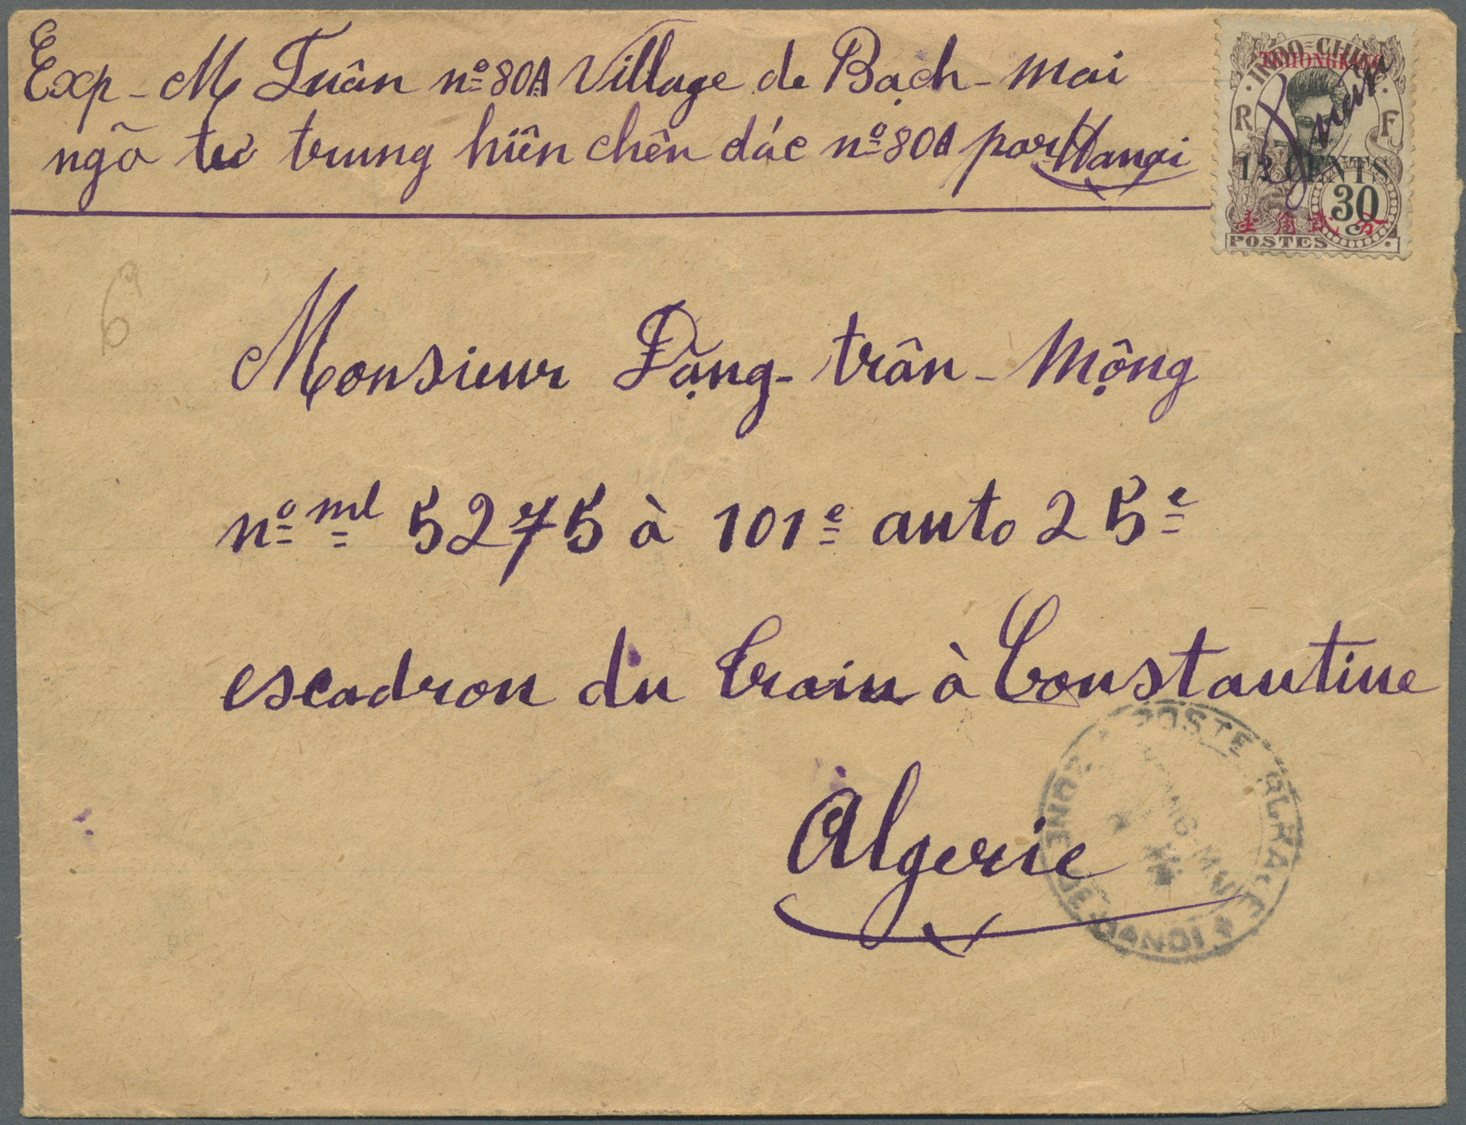 Exp - M Tuân nº 80A Village de Bạch - mai
ngõ tư trung hiên chên dác nº 80A par Hanoi
INDO-CHINE
TCHONGKING
R F
12 CENTS
30
壹角貳分
POSTES
6
Monsieur Đặng - trân - Mộng
nº ml 5275 à 101e auto 25e
escadron du train à Constantine
Algerie
POSTE RURALE
ZONE DE HANOI